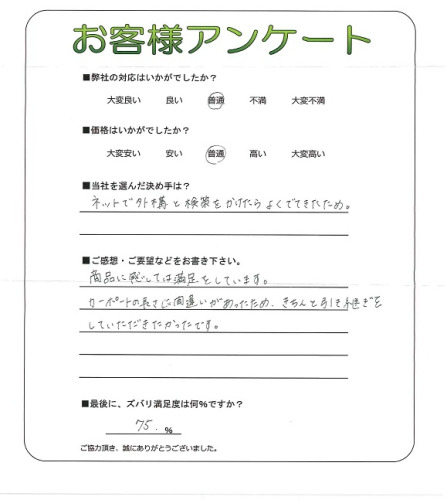 お客様アンケート
■弊社の対応はいかがでしたか？
大変良い 良い 普通 不満 大変不満
■価格はいかがでしたか？
大変安い 安い 普通 高い 大変高い
■当社を選んだ決め手は？
ネットで外構と検索をかけたらよくでてきたため。
■ご感想・ご要望などをお書き下さい。
商品に感しては満足をしています。
カーポートの長さに間違いがあったため、きちんと引き継ぎを
していただきたかったです。
■最後に、ズバリ満足度は何%ですか？
75. %
ご協力頂き、誠にありがとうございました。